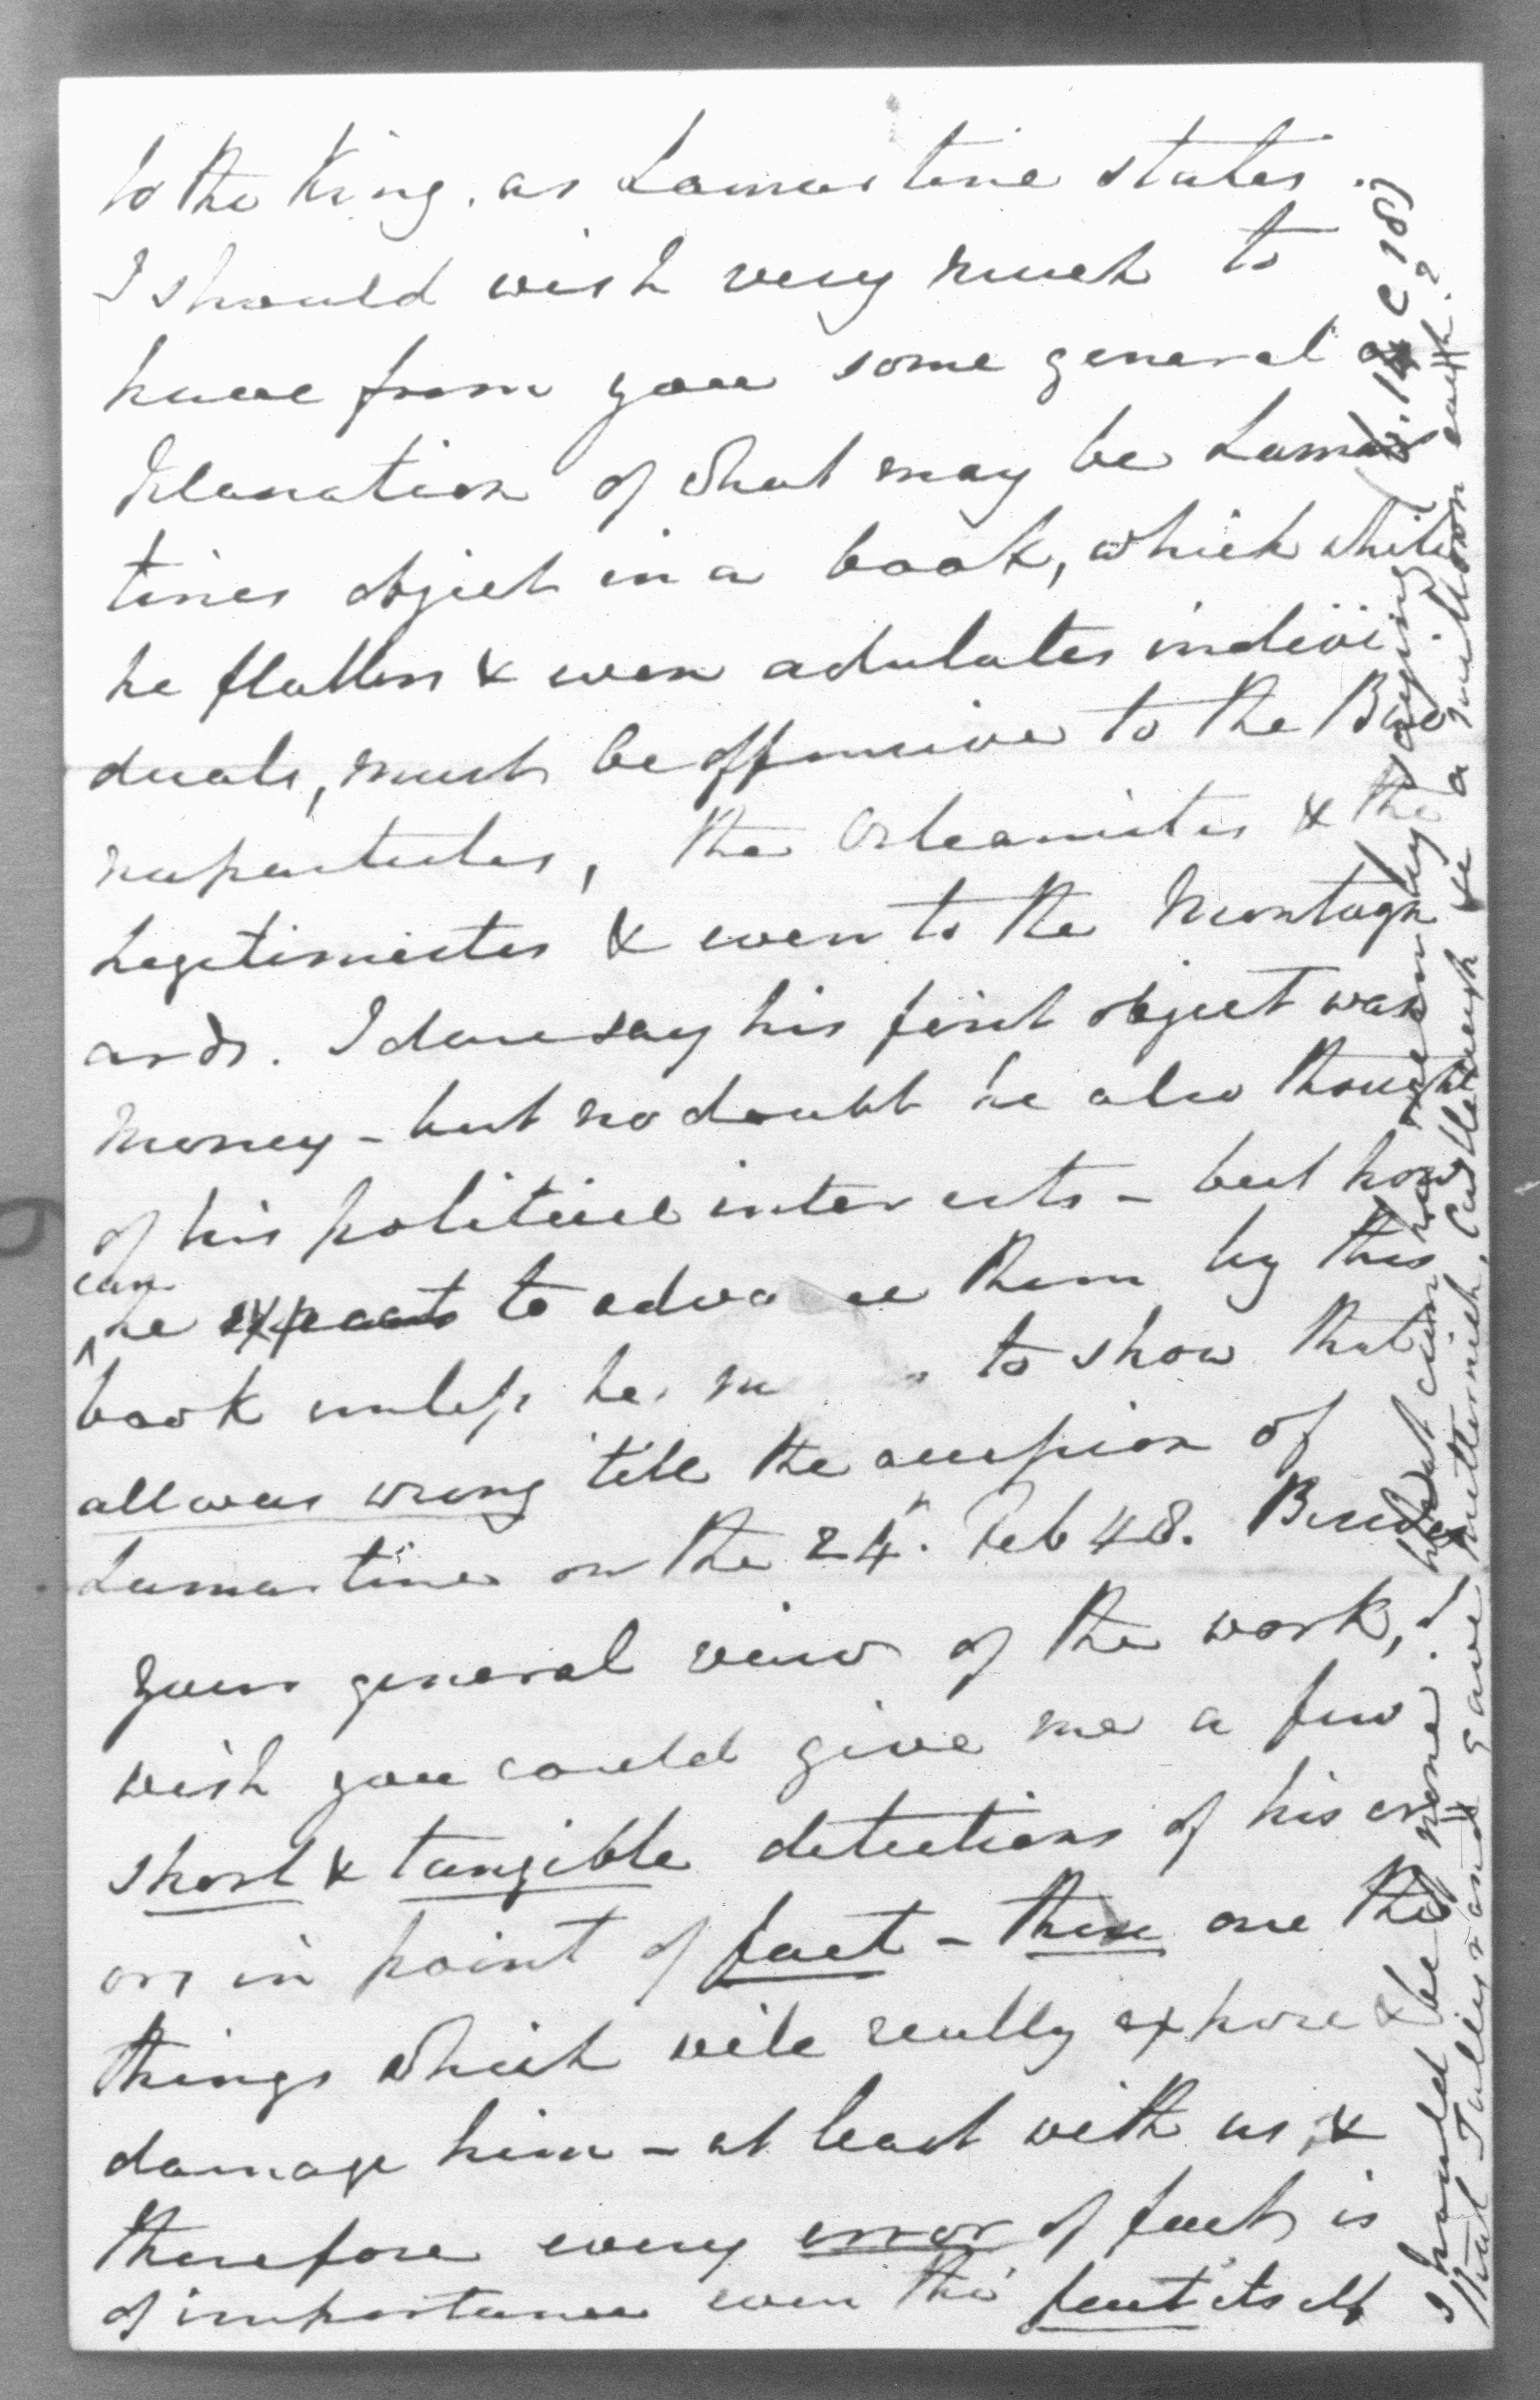 to the King, as Lamartine states.
I should wish very much to
have from you some general ex
planation of what may be Lamar
tines object in a book, which while
he flatters & even adulates indivi
duals, must be offensive to the Buo
napartistes, the Orleanistes & the
Legitimistes & even to the Montagn
ards. I dare say his first object was
money - but no doubt he also thought
of his political interests - but how
can
he expects to advance them by this
book unless he m to show that
all was wrong till the accession of
Lamartine on the 24th. Feb 48. Besides
your general view of the work, I
wish you could give me a few
short & tangible detections of his err
ors in point of fact - these are the
things which will really expose &
damage him - at least with us, &
therefore every error of fact is
of importance even tho' fact itself
should be none. What can he mean by saying (v. 14 C 18)
that Talleyrand gave Metternich, Castlereagh &c a million each?